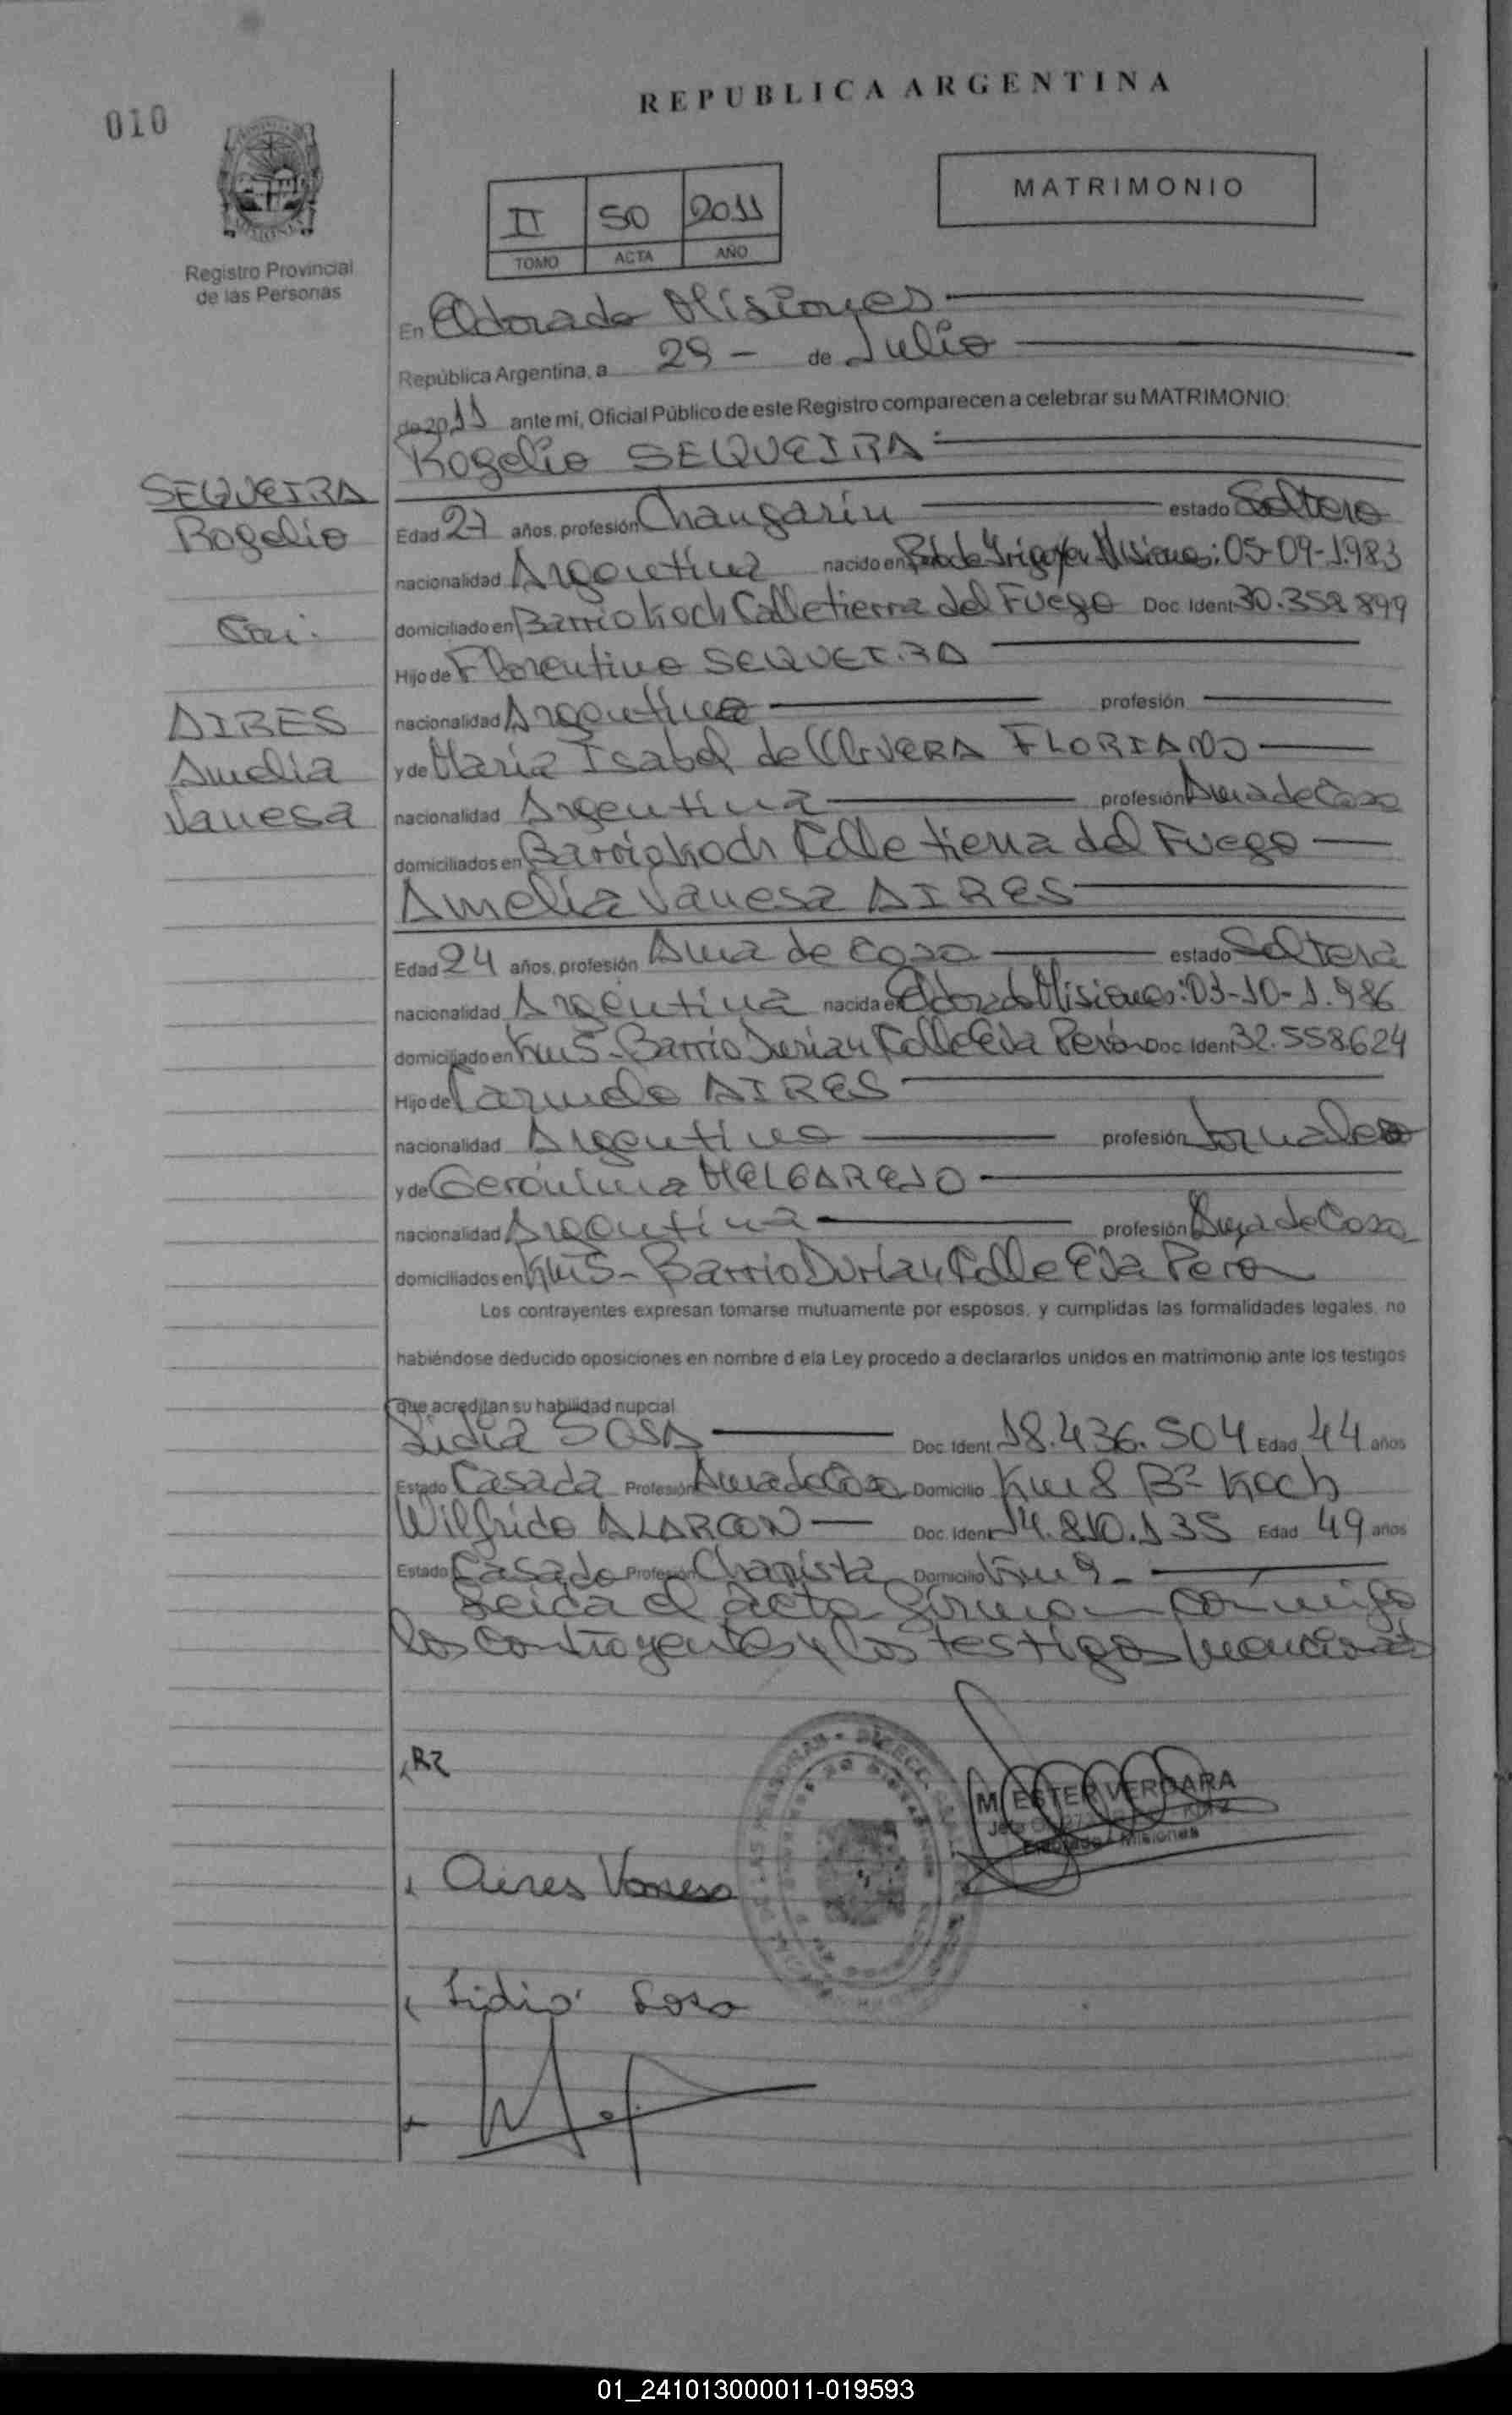 010
REPUBLICA ARGENTINA
MATRIMONIO
II 50 2011
TOMO ACTA AÑO
Registro Provincial
de las Personas
En Eldorado Misiones
República Argentina, a 29 - de Julio
de 2011 ante mi, Oficial Público de este Registro comparecen a celebrar su MATRIMONIO:
Rogelio SEQUEIRA
SEQUEIRA
Rogelio
Con:
AIRES
Amelia
Vanesa
Edad 27 años, profesión Changarín estado Soltero
nacionalidad Argentina nacido en Bdo de Irigoyen Misiones: 05-09-1.983
domiciliado en Barrio Koch Calle tierra del Fuego Doc. Ident 30.358.899
Hijo de Florentino SEQUEIRA
nacionalidad Argentino profesión
y de María Isabel de OLIVERA FLORIANO
nacionalidad Argentina profesión Ama de Casa
domiciliados en Barrio Koch Calle tierra del Fuego
Amelia Vanesa AIRES
Edad 24 años, profesión Ama de Casa estado Soltera
nacionalidad Argentina nacida en Eldorado Misiones: 03-10-1.986
domiciliado en Km 5- Barrio Calle Eva Perón Doc. Ident 32.558.624
Hijo de AIRES
nacionalidad Argentino profesión Jornalero
y de Gerónima MELGAREJO
nacionalidad Argentina profesión Ama de Casa
domiciliados en Km 5- Barrio Calle Eva Perón
Los contrayentes expresan tomarse mutuamente por esposos, y cumplidas las formalidades legales, no
habiéndose deducido oposiciones en nombre d ela Ley procedo a declararlos unidos en matrimonio ante los testigos
que acreditan su habilidad nupcial
Lidia SOSA Doc. Ident 18.436.504 Edad 44 años
Estado Casada Profesión Ama de Casa Domicilio Km 8 Bº Koch
Wilfrido ALARCON Doc. Ident 14.810.135 Edad 49 años
Estado Casado Profesión Chapista Domicilio Km 9-
Leída el acta firman conmigo
los contrayentes y los testigos mencionados
RZ
M. ESTER VERGARA
Eldorado - Misiones
Aires Vanesa
Lidia Sosa
01_241013000011-019593